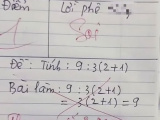 Điểm Lời phê
Sai
Đề: Tính: 9:3(2+1)
Bài làm: 9:3(2+1)
= 3(2+1) = 9